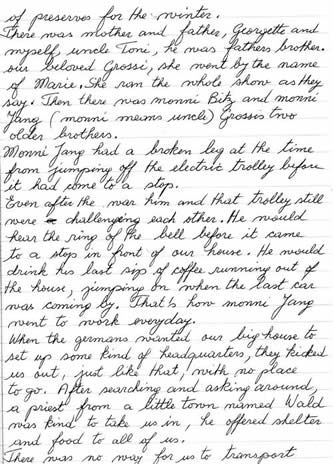 of preserves for the winter.
There was mother and father, Georgette and
myself, uncle Toni, he was fathers brother.
our beloved Grossi, she went by the name
of Marie. She ran the whole show as they
say. Then there was monni Bitz and monni
Jang (monni means uncle) Grossis two
older brothers.
Monni Jang had a broken leg at the time
from jumping off the electric trolley before
it had come to a stop.
Even after the war him and that trolley still
were challenging each other. He would
hear the ring of the bell before it came
to a stop in front of our house. He would
drink his last sip of coffee running out of
the house, jimping on when the last car
was coming by. That's how monni Jang
went to work everyday.
When the germans wanted our big house to
set up some kind of headquarters, they kicked
us out, just like that, with no place
to go. After searching and asking around,
a priest from a little town named Wald
was kind to take us in, he offered shelter
and food to all of us.
There was no way for us to transport